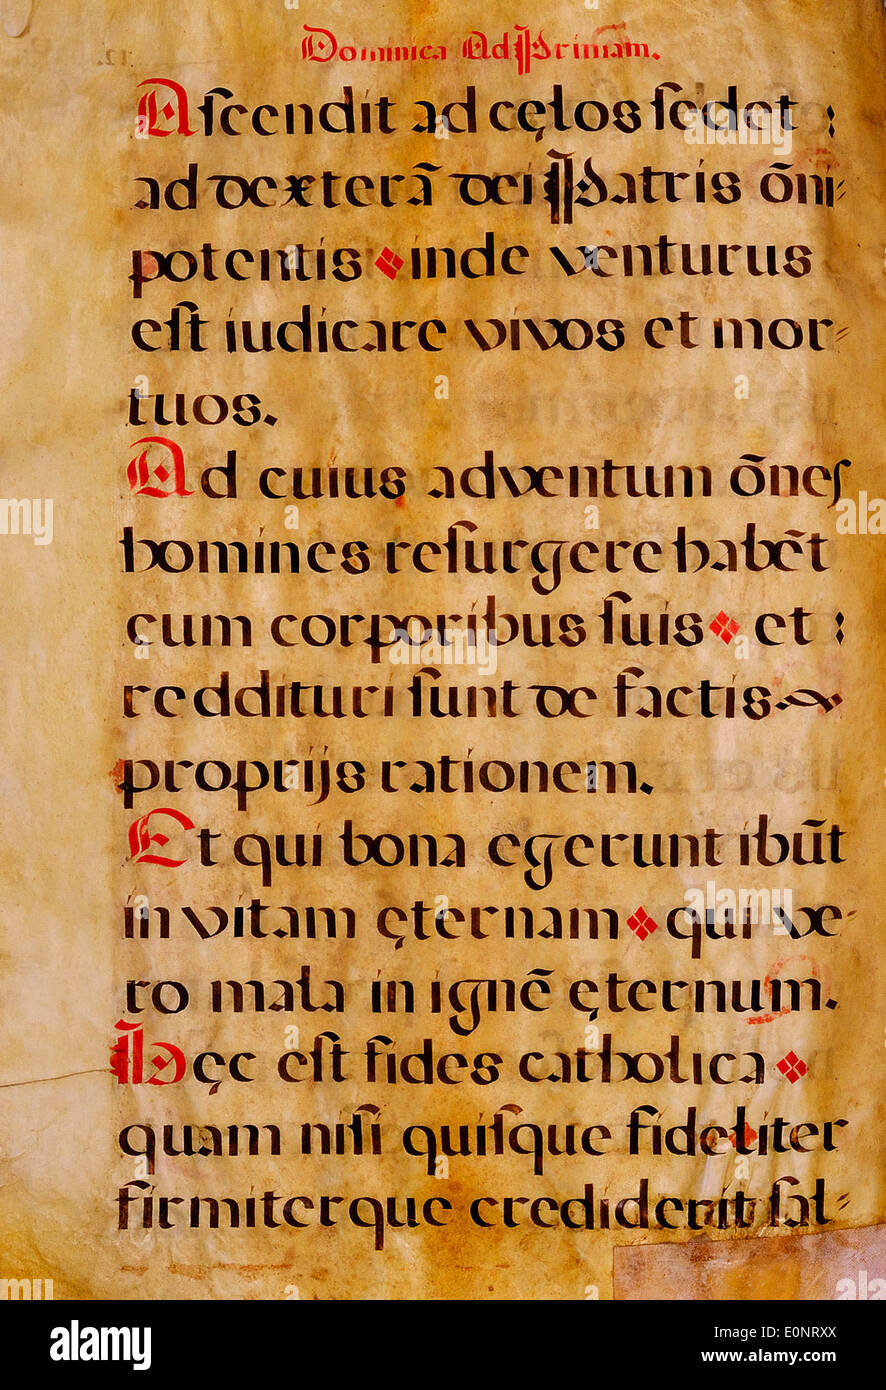 Dominica Ad Primam.
Aſcendit ad cęlos ſedet :
ad dexterā dei Patris ōni-
potentis inde venturus
eſt iudicare vivos et mor-
tuos.
Ad cuius adventum ōnes
homines reſurgere habēt
cum corporibus ſuis et :
reddituri ſunt de factis
proprijs rationem.
Et qui bona egerunt ibūt
in vitam ęternam qui ve-
ro mala in ignē ęternum.
Hęc eſt fides catholica
quam niſi quiſque fideliter
firmiterque crediderit ſal-
alamy
Image ID: E0NRXX
www.alamy.com